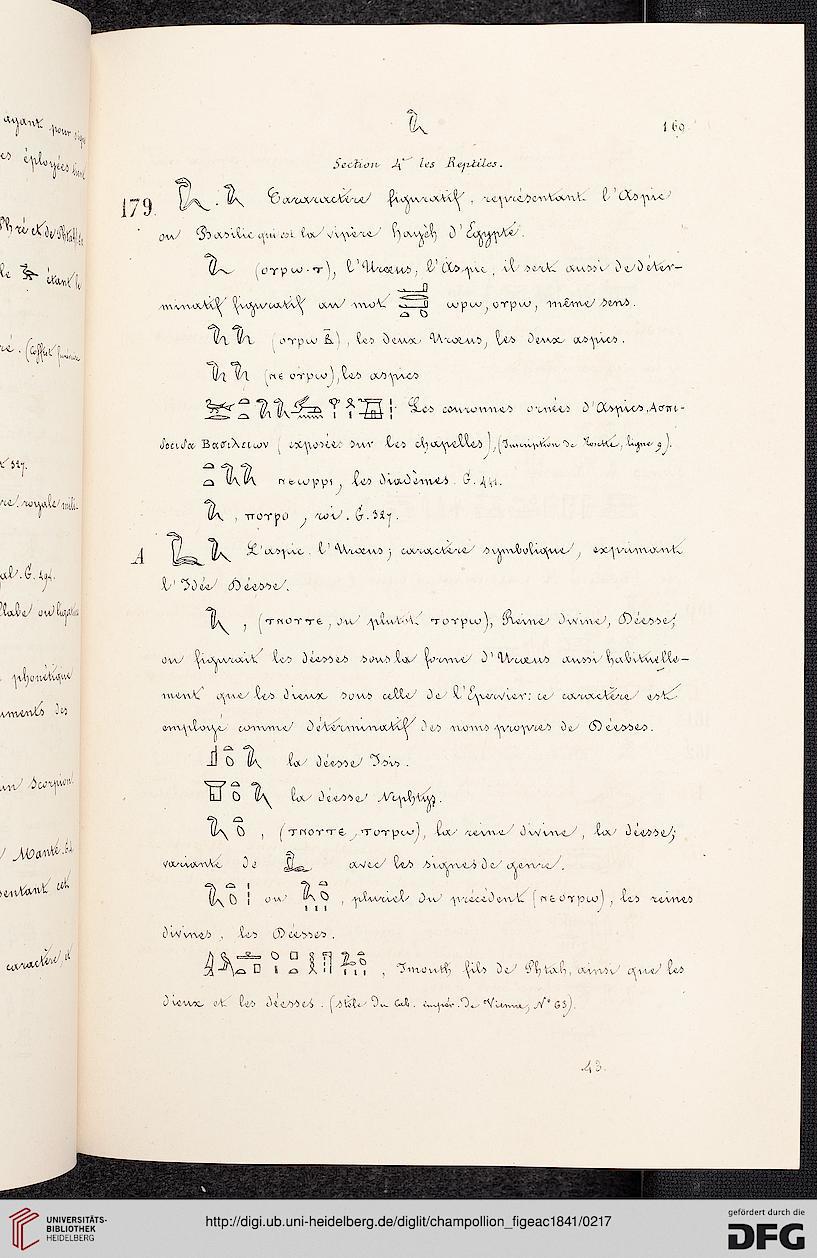 169
Section 4e les Reptiles.
179. Cararactère figuratif, représentant l'Aspic
ou Basilic qui est la vipère hayéh d'Egypte.
(ⲟⲩⲣⲱ.ⲧ), l'Uræus, l'Aspic, il sert aussi de déter-
minatif figuratif au mot ⲱⲣⲱ, ⲟⲩⲣⲱ, même sens.
(ⲟⲩⲣⲱ ⲃ̄), les deux Uræus, les deux aspics.
(ⲛⲉ ⲟⲩⲣⲱ), les aspics
Les couronnes ornées d'Aspics. Ασπι-
δοειδα Βασιλειων (exposées sur les chapelles), (Inscription de Rosette, ligne 9).
les diadèmes. G. 441.
roi. G. 327.
A L'aspic. l'Uræus; caractère symbolique, exprimant
l'Idée Déesse.
(ⲧⲛⲟⲩⲧⲉ, ou plutôt ⲧⲟⲩⲣⲱ), Reine divine, Déesse;
on figurait les déesses sous la forme d'Uræus aussi habituelle-
ment que les dieux sous celle de l'Epervier: ce caractère est
employé comme déterminatif des noms propres de Déesses.
la déesse Isis.
la déesse Nephtys.
(ⲧⲛⲟⲩⲧⲉ, ⲧⲟⲩⲣⲱ), la reine divine, la déesse;
variante de avec les signes de genre.
ou , pluriel du précédent (ⲛⲉⲟⲩⲣⲱ), les reines
divines, les Déesses.
, Imouth fils de Phtah, ainsi que les
dieux et les déesses. (stèle du Cab. impér. de Vienne, N° 63).
43.
ayant pour
éployées
étant le
327.
royale
G. 294.
phonétique
des
Scorpion
caractère, et
UNIVERSITÄTS-
BIBLIOTHEK
HEIDELBERG
http://digi.ub.uni-heidelberg.de/diglit/champollion_figeac1841/0217
gefördert durch die
DFG